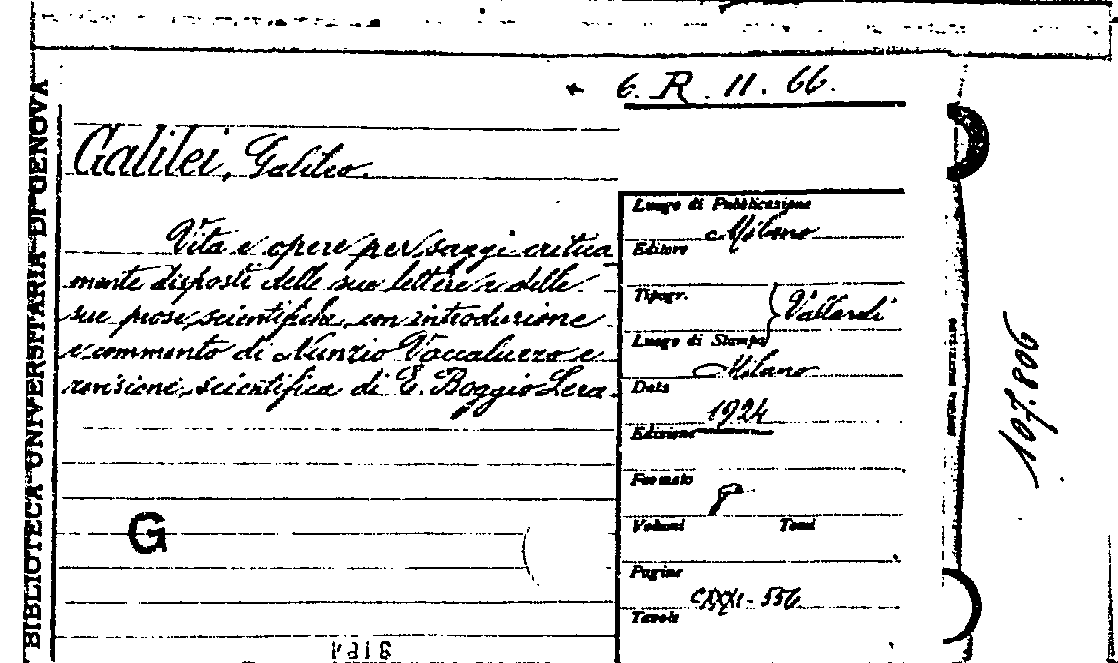 6. R. 11. 66.
Galilei, Galileo.
Vita e opere per saggi critica
mente disposti delle sue lettere e delle
sue prose scientifiche, con introduzione
e commento di Nunzio Vaccaluzzo e
revisione scientifica di E. Boggio Lera.
Luogo di Pubblicazione
Milano
Editore
Tipogr.
Vallardi
Luogo di Stampa
Milano
Data
1924
Edizione
Formato
8°
Volumi Tomi
Pagine
CLXXI-556
Tavole
G
BIBLIOTECA UNIVERSITARIA DI GENOVA
107.806